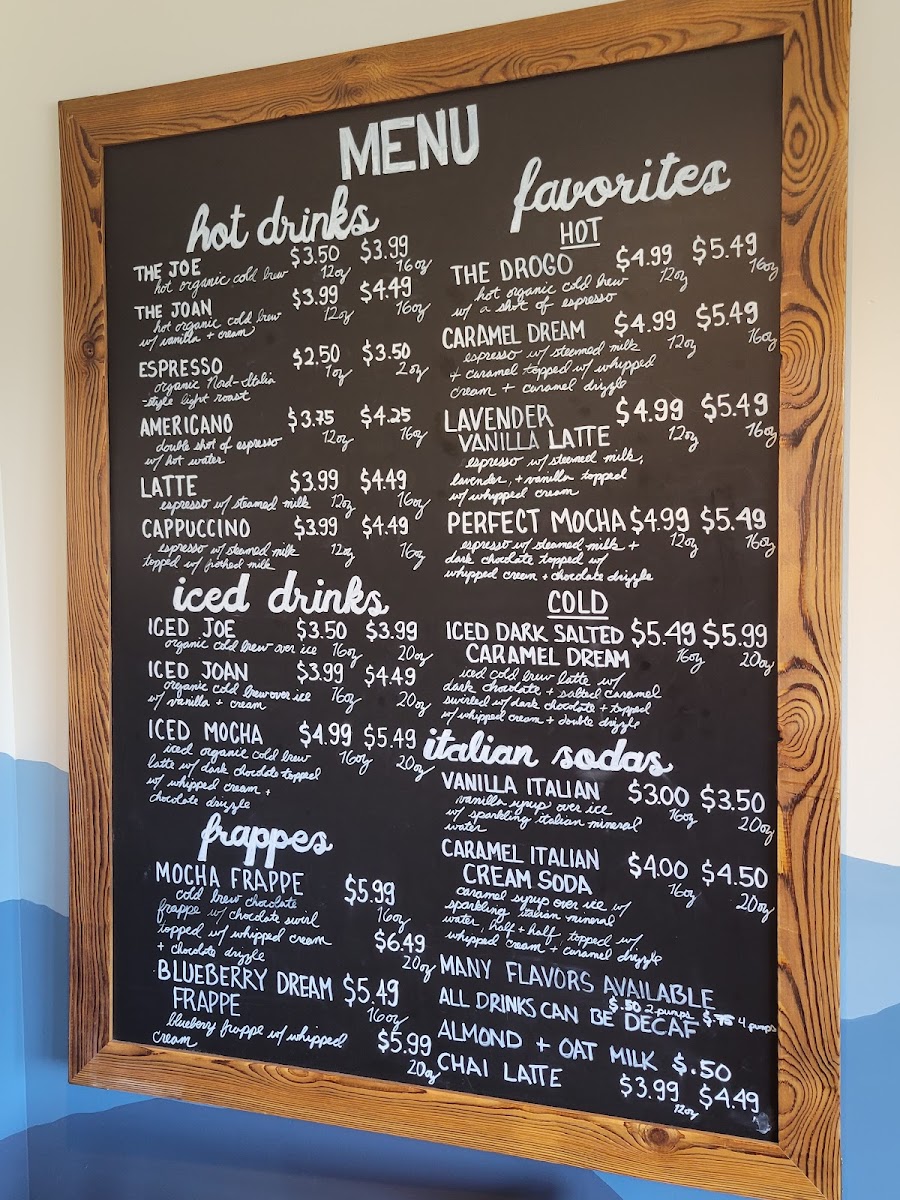 MENU
hot drinks
THE JOE $3.50 $3.99
hot organic cold brew 12oz 16oz
THE JOAN $3.99 $4.49
hot organic cold brew 12oz 16oz
w/ vanilla + cream
ESPRESSO $2.50 $3.50
organic Nord-Italia 1oz 2oz
-style light roast
AMERICANO $3.75 $4.25
double shot of espresso 12oz 16oz
w/ hot water
LATTE $3.99 $4.49
espresso w/ steamed milk 12oz 16oz
CAPPUCCINO $3.99 $4.49
espresso w/ steamed milk 12oz 16oz
topped w/ frothed milk
iced drinks
ICED JOE $3.50 $3.99
organic cold brew over ice 16oz 20oz
ICED JOAN $3.99 $4.49
organic cold brew over ice 16oz 20oz
w/ vanilla + cream
ICED MOCHA $4.99 $5.49
iced organic cold brew 16oz 20oz
latte w/ dark chocolate topped
w/ whipped cream +
chocolate drizzle
frappes
MOCHA FRAPPE $5.99
cold brew chocolate 16oz
frappe w/ chocolate swirl
topped w/ whipped cream $6.49
+ chocolate drizzle 20oz
BLUEBERRY DREAM $5.49
FRAPPE 16oz
blueberry frappe w/ whipped $5.99
cream 20oz
favorites
HOT
THE DROGO $4.99 $5.49
hot organic cold brew 12oz 16oz
w/ a shot of espresso
CARAMEL DREAM $4.99 $5.49
espresso w/ steamed milk 12oz 16oz
+ caramel topped w/ whipped
cream + caramel drizzle
LAVENDER $4.99 $5.49
VANILLA LATTE 12oz 16oz
espresso w/ steamed milk,
lavender, + vanilla topped
w/ whipped cream
PERFECT MOCHA $4.99 $5.49
espresso w/ steamed milk + 12oz 16oz
dark chocolate topped w/
whipped cream + chocolate drizzle
COLD
ICED DARK SALTED $5.49 $5.99
CARAMEL DREAM 16oz 20oz
iced cold brew latte w/
dark chocolate + salted caramel
swirled w/ dark chocolate + topped
w/ whipped cream + double drizzle
italian sodas
VANILLA ITALIAN $3.00 $3.50
vanilla syrup over ice 16oz 20oz
w/ sparkling italian mineral
water
CARAMEL ITALIAN $4.00 $4.50
CREAM SODA 16oz 20oz
caramel syrup over ice w/
sparkling italian mineral
water, half + half, topped w/
whipped cream + caramel drizzle
MANY FLAVORS AVAILABLE
$.50 2 pumps $.75 4 pumps
ALL DRINKS CAN BE DECAF
ALMOND + OAT MILK $.50
CHAI LATTE $3.99 $4.49
12oz